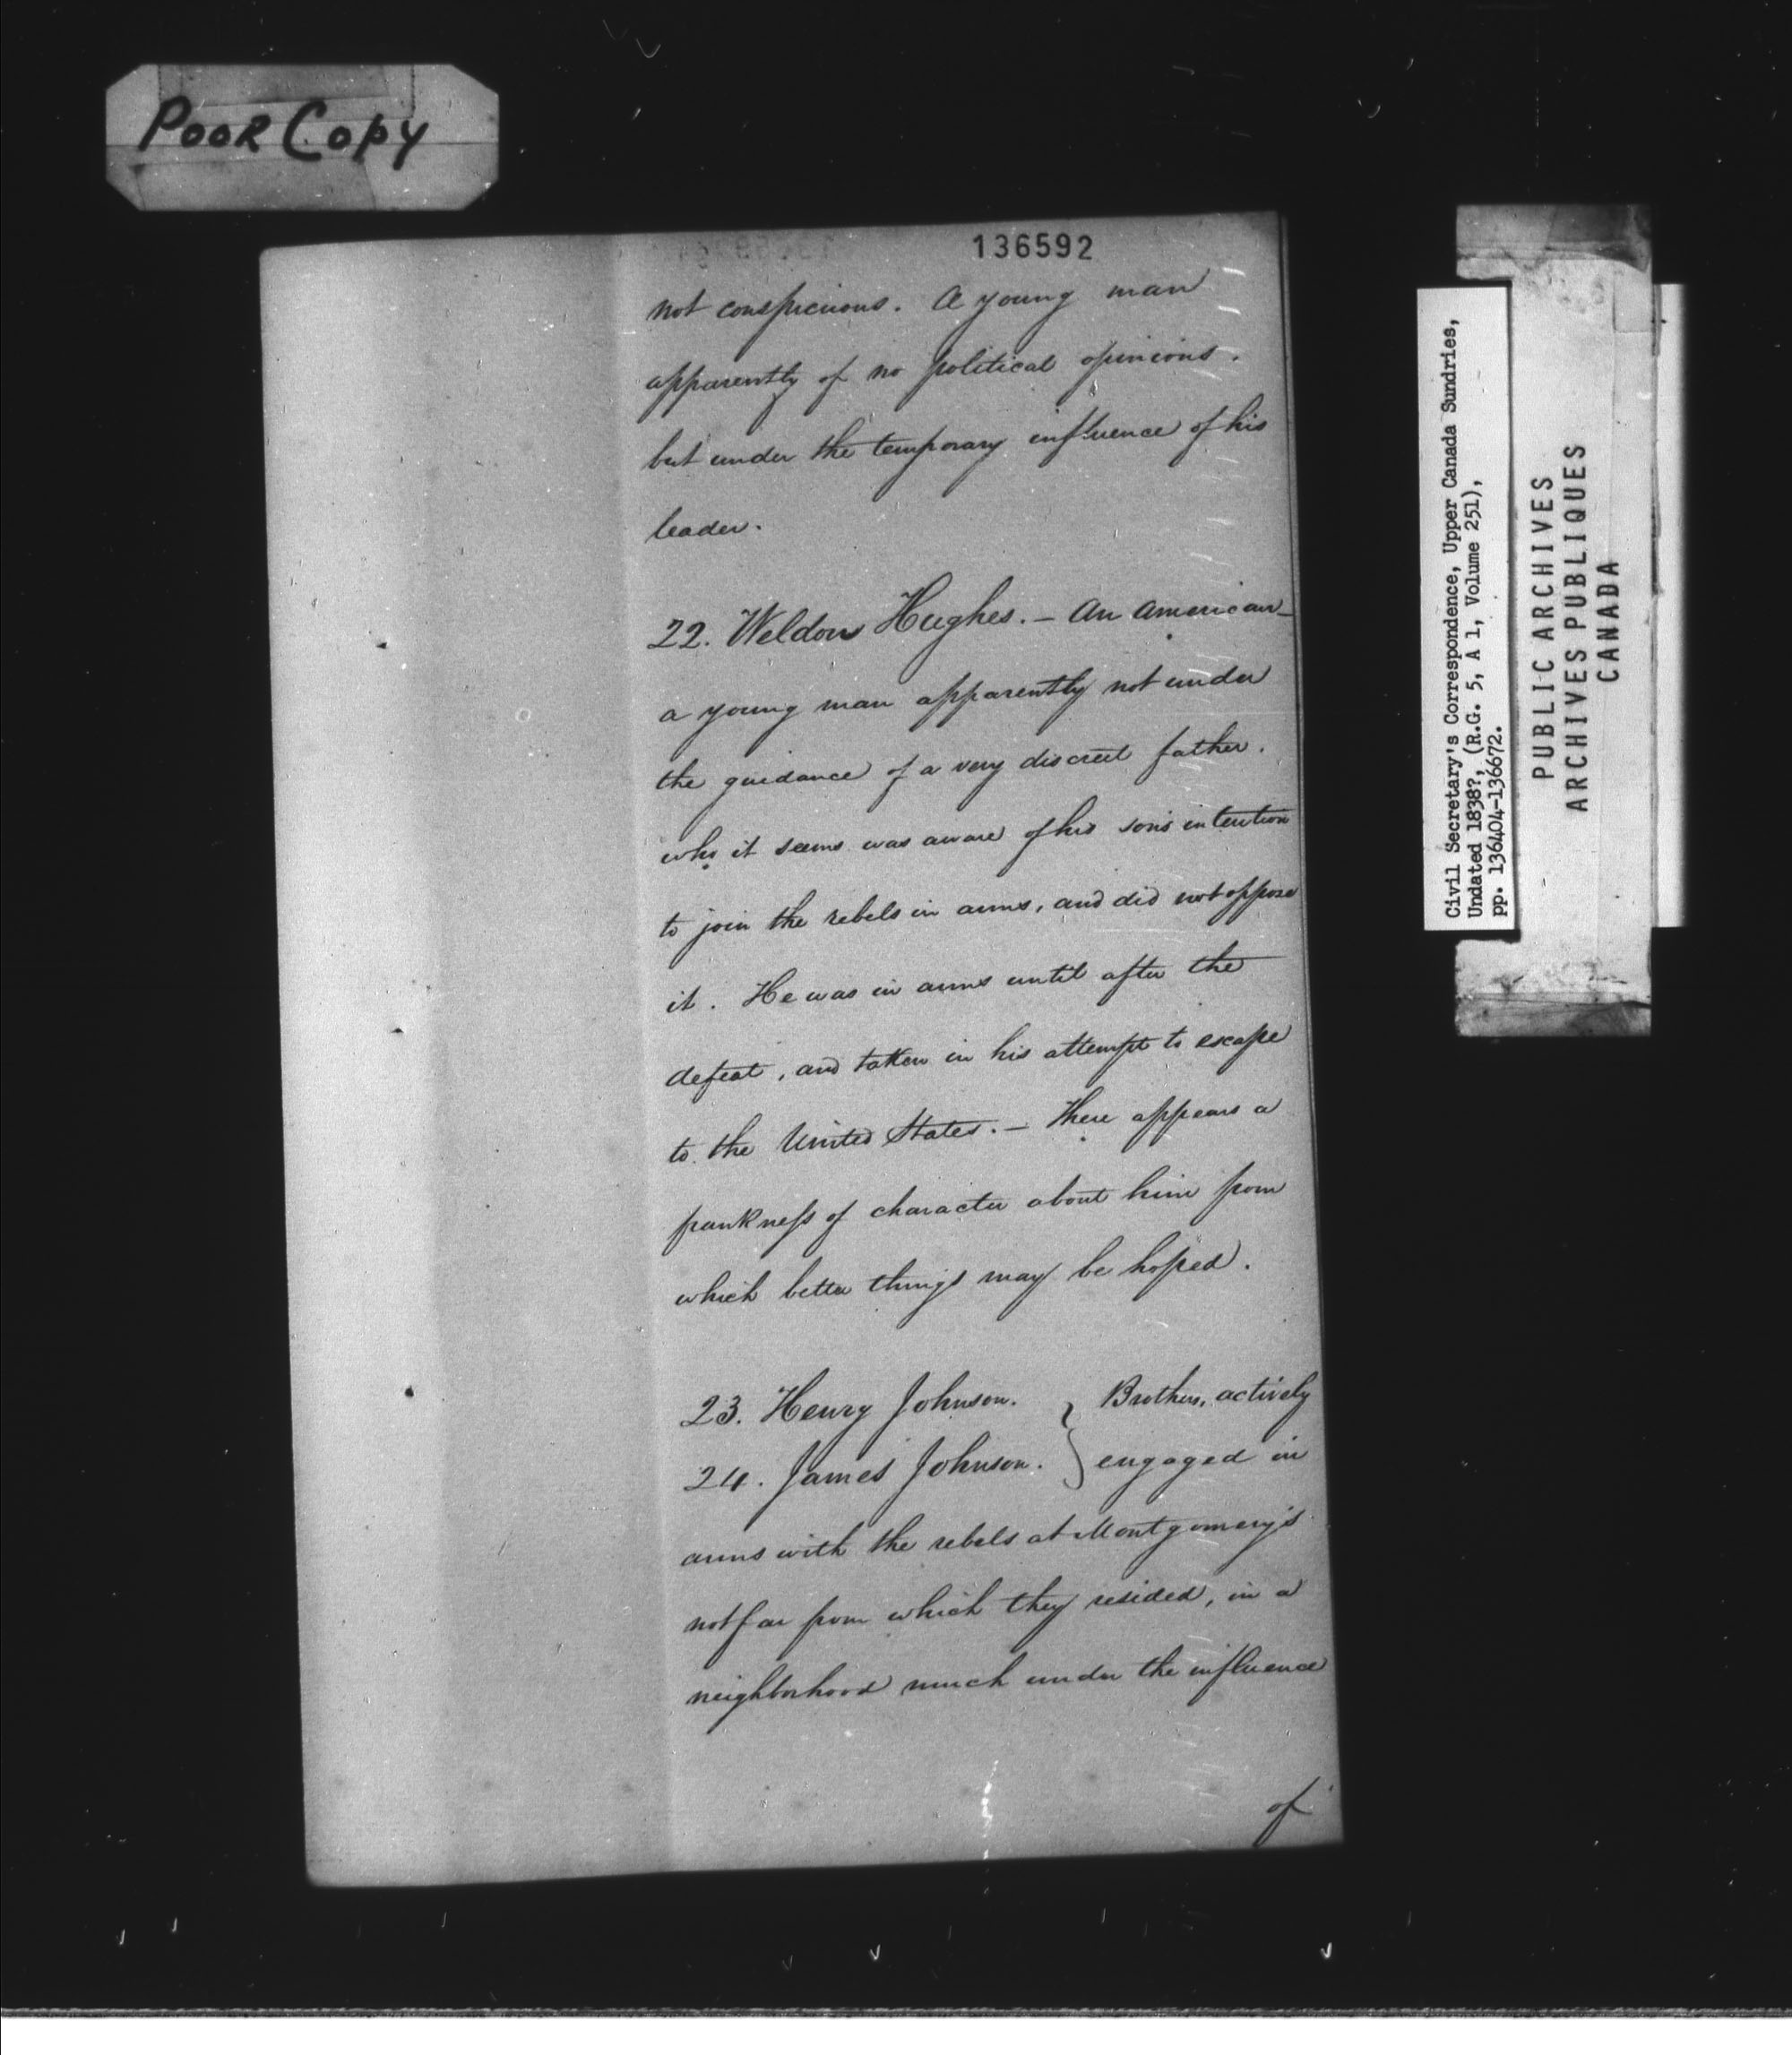 Poor Copy
136592
not conspicuous. A young man
apparently of no political opinions.
but under the temporary influence of his
leader.
22. Weldon Hughes. – An American –
a young man apparently not under
the guidance of a very discreet father.
who it seems was aware of his son's intention
to join the rebels in arms, and did not oppose
it. He was in arms until after the
defeat, and taken in his attempt to escape
to the United States. – There appears a
frankness of character about him from
which better things may be hoped.
23. Henry Johnson. } Brothers, actively
24. James Johnson. } engaged in
arms with the rebels at Montgomery's
not far from which they resided, in a
neighborhood much under the influence
of
Civil Secretary's Correspondence, Upper Canada Sundries,
Undated 1838?, (R.G. 5, A 1, Volume 251),
pp. 136404-136672.
PUBLIC ARCHIVES
ARCHIVES PUBLIQUES
CANADA